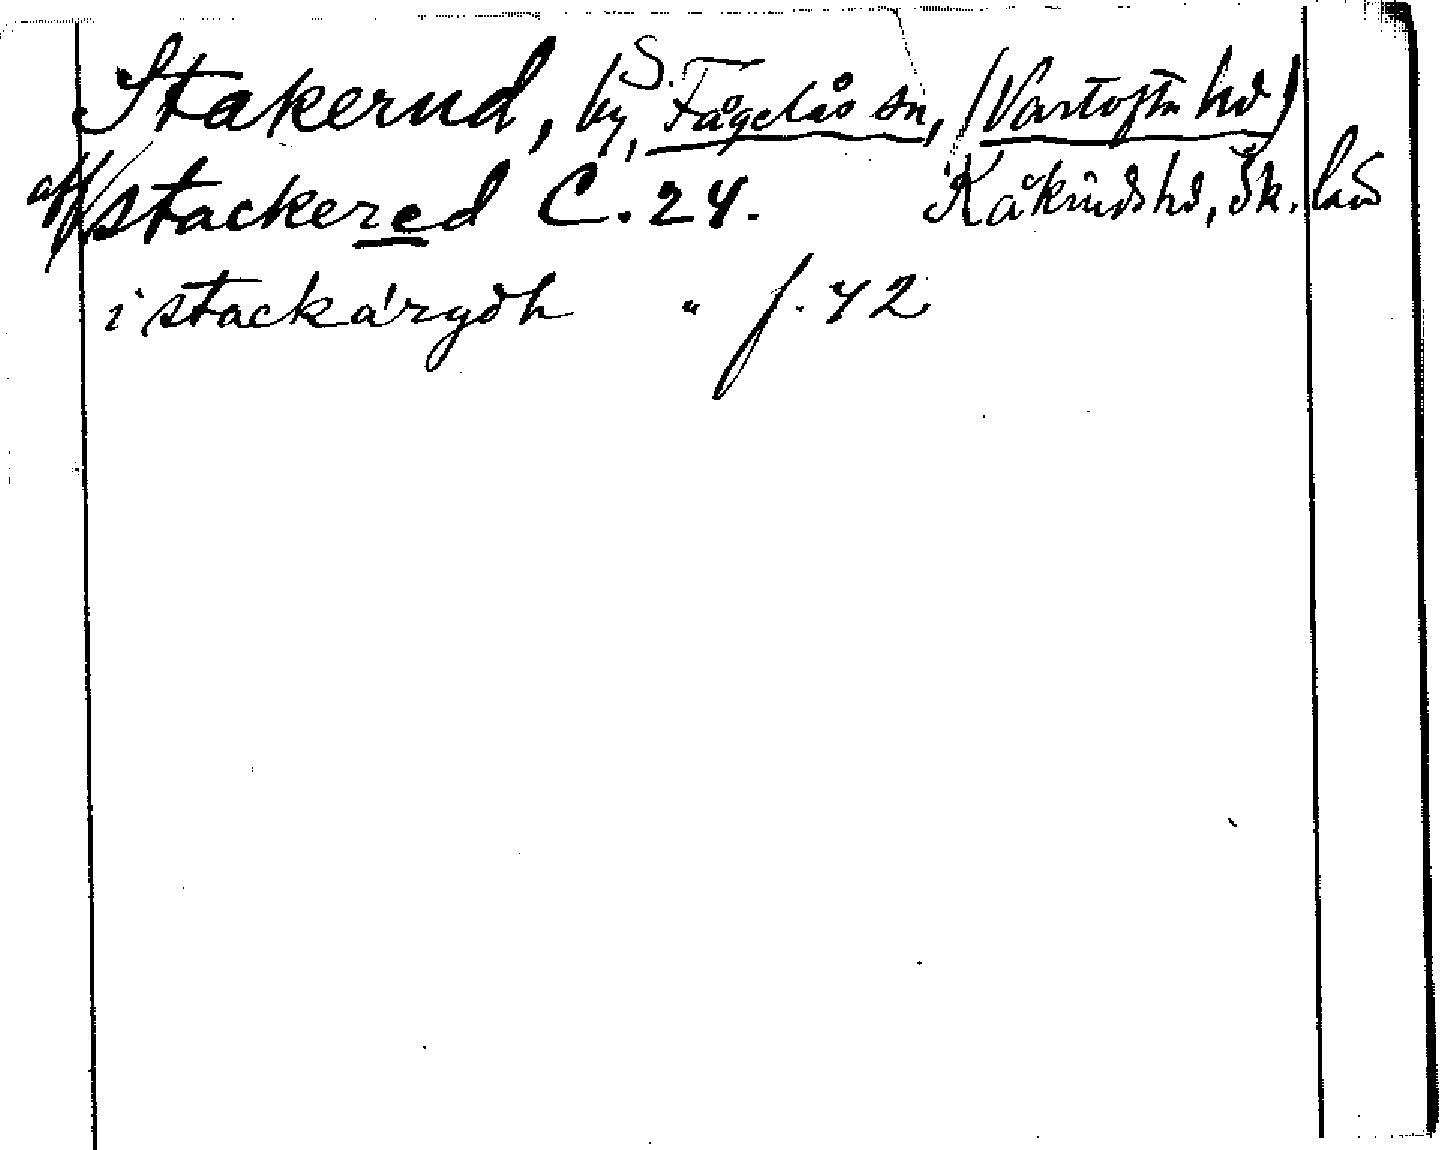 Stakerud, by, S. Fågelås sn, (Vartofta hd)
aff stackered C. 24. Kåkinds hd, Sk. län
i stackárydh " f. 42